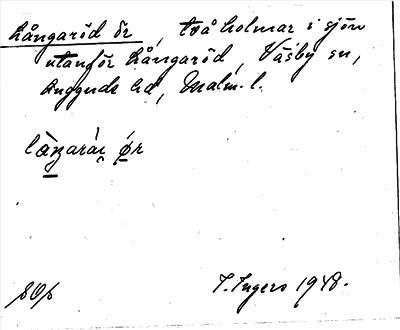 Långaröd ör, två holmar i sjön
utanför Långaröd, Väsby sn,
Luggude hd, Malm. l.
SOp
I. Ingers 1948.